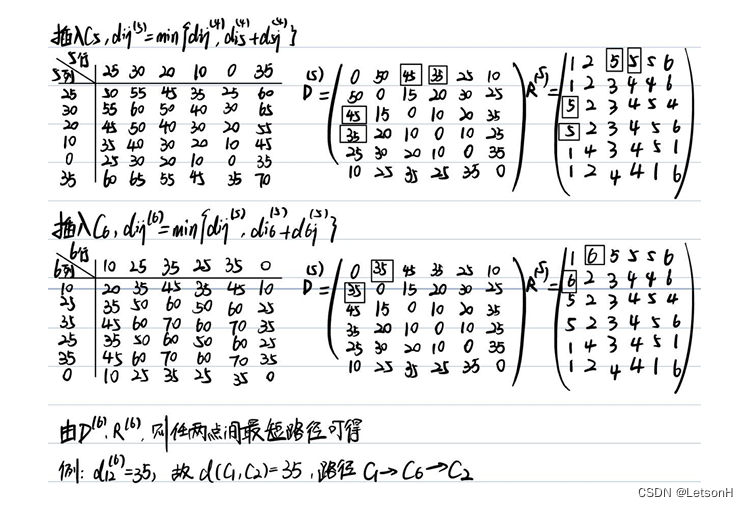 插入C5, dij⁽⁵⁾=min{dij⁽⁴⁾, di5⁽⁴⁾+d5j⁽⁴⁾}
5行
5列 25 30 20 10 0 35
25 50 55 45 35 25 60
30 55 60 50 40 30 65
20 45 50 40 30 20 55
10 35 40 30 20 10 45
0 25 30 20 10 0 35
35 60 65 55 45 35 70
D⁽⁵⁾=
0 50 45 35 25 10
50 0 15 20 30 25
45 15 0 10 20 35
35 20 10 0 10 25
25 30 20 10 0 35
10 25 35 25 35 0
R⁽⁵⁾=
1 2 5 5 5 6
1 2 3 4 4 6
5 2 3 4 5 4
5 2 3 4 5 6
1 4 3 4 5 1
1 2 4 4 1 6
插入C6, dij⁽⁶⁾=min{dij⁽⁵⁾, di6⁽⁵⁾+d6j⁽⁵⁾}
6行
6列 10 25 35 25 35 0
10 20 35 45 35 45 10
25 35 50 60 50 60 25
35 45 60 70 60 70 35
25 35 50 60 50 60 25
35 45 60 70 60 70 35
0 10 25 35 25 35 0
D⁽⁵⁾=
0 35 45 35 25 10
35 0 15 20 30 25
45 15 0 10 20 35
35 20 10 0 10 25
25 30 20 10 0 35
10 25 35 25 35 0
R⁽⁵⁾=
1 6 5 5 5 6
6 2 3 4 4 6
5 2 3 4 5 4
5 2 3 4 5 6
1 4 3 4 5 1
1 2 4 4 1 6
由D⁽⁶⁾, R⁽⁶⁾, 则任两点间最短路径可得
例: d12⁽⁶⁾=35, 故d(C1,C2)=35, 路径 C1→C6→C2
CSDN @LetsonH